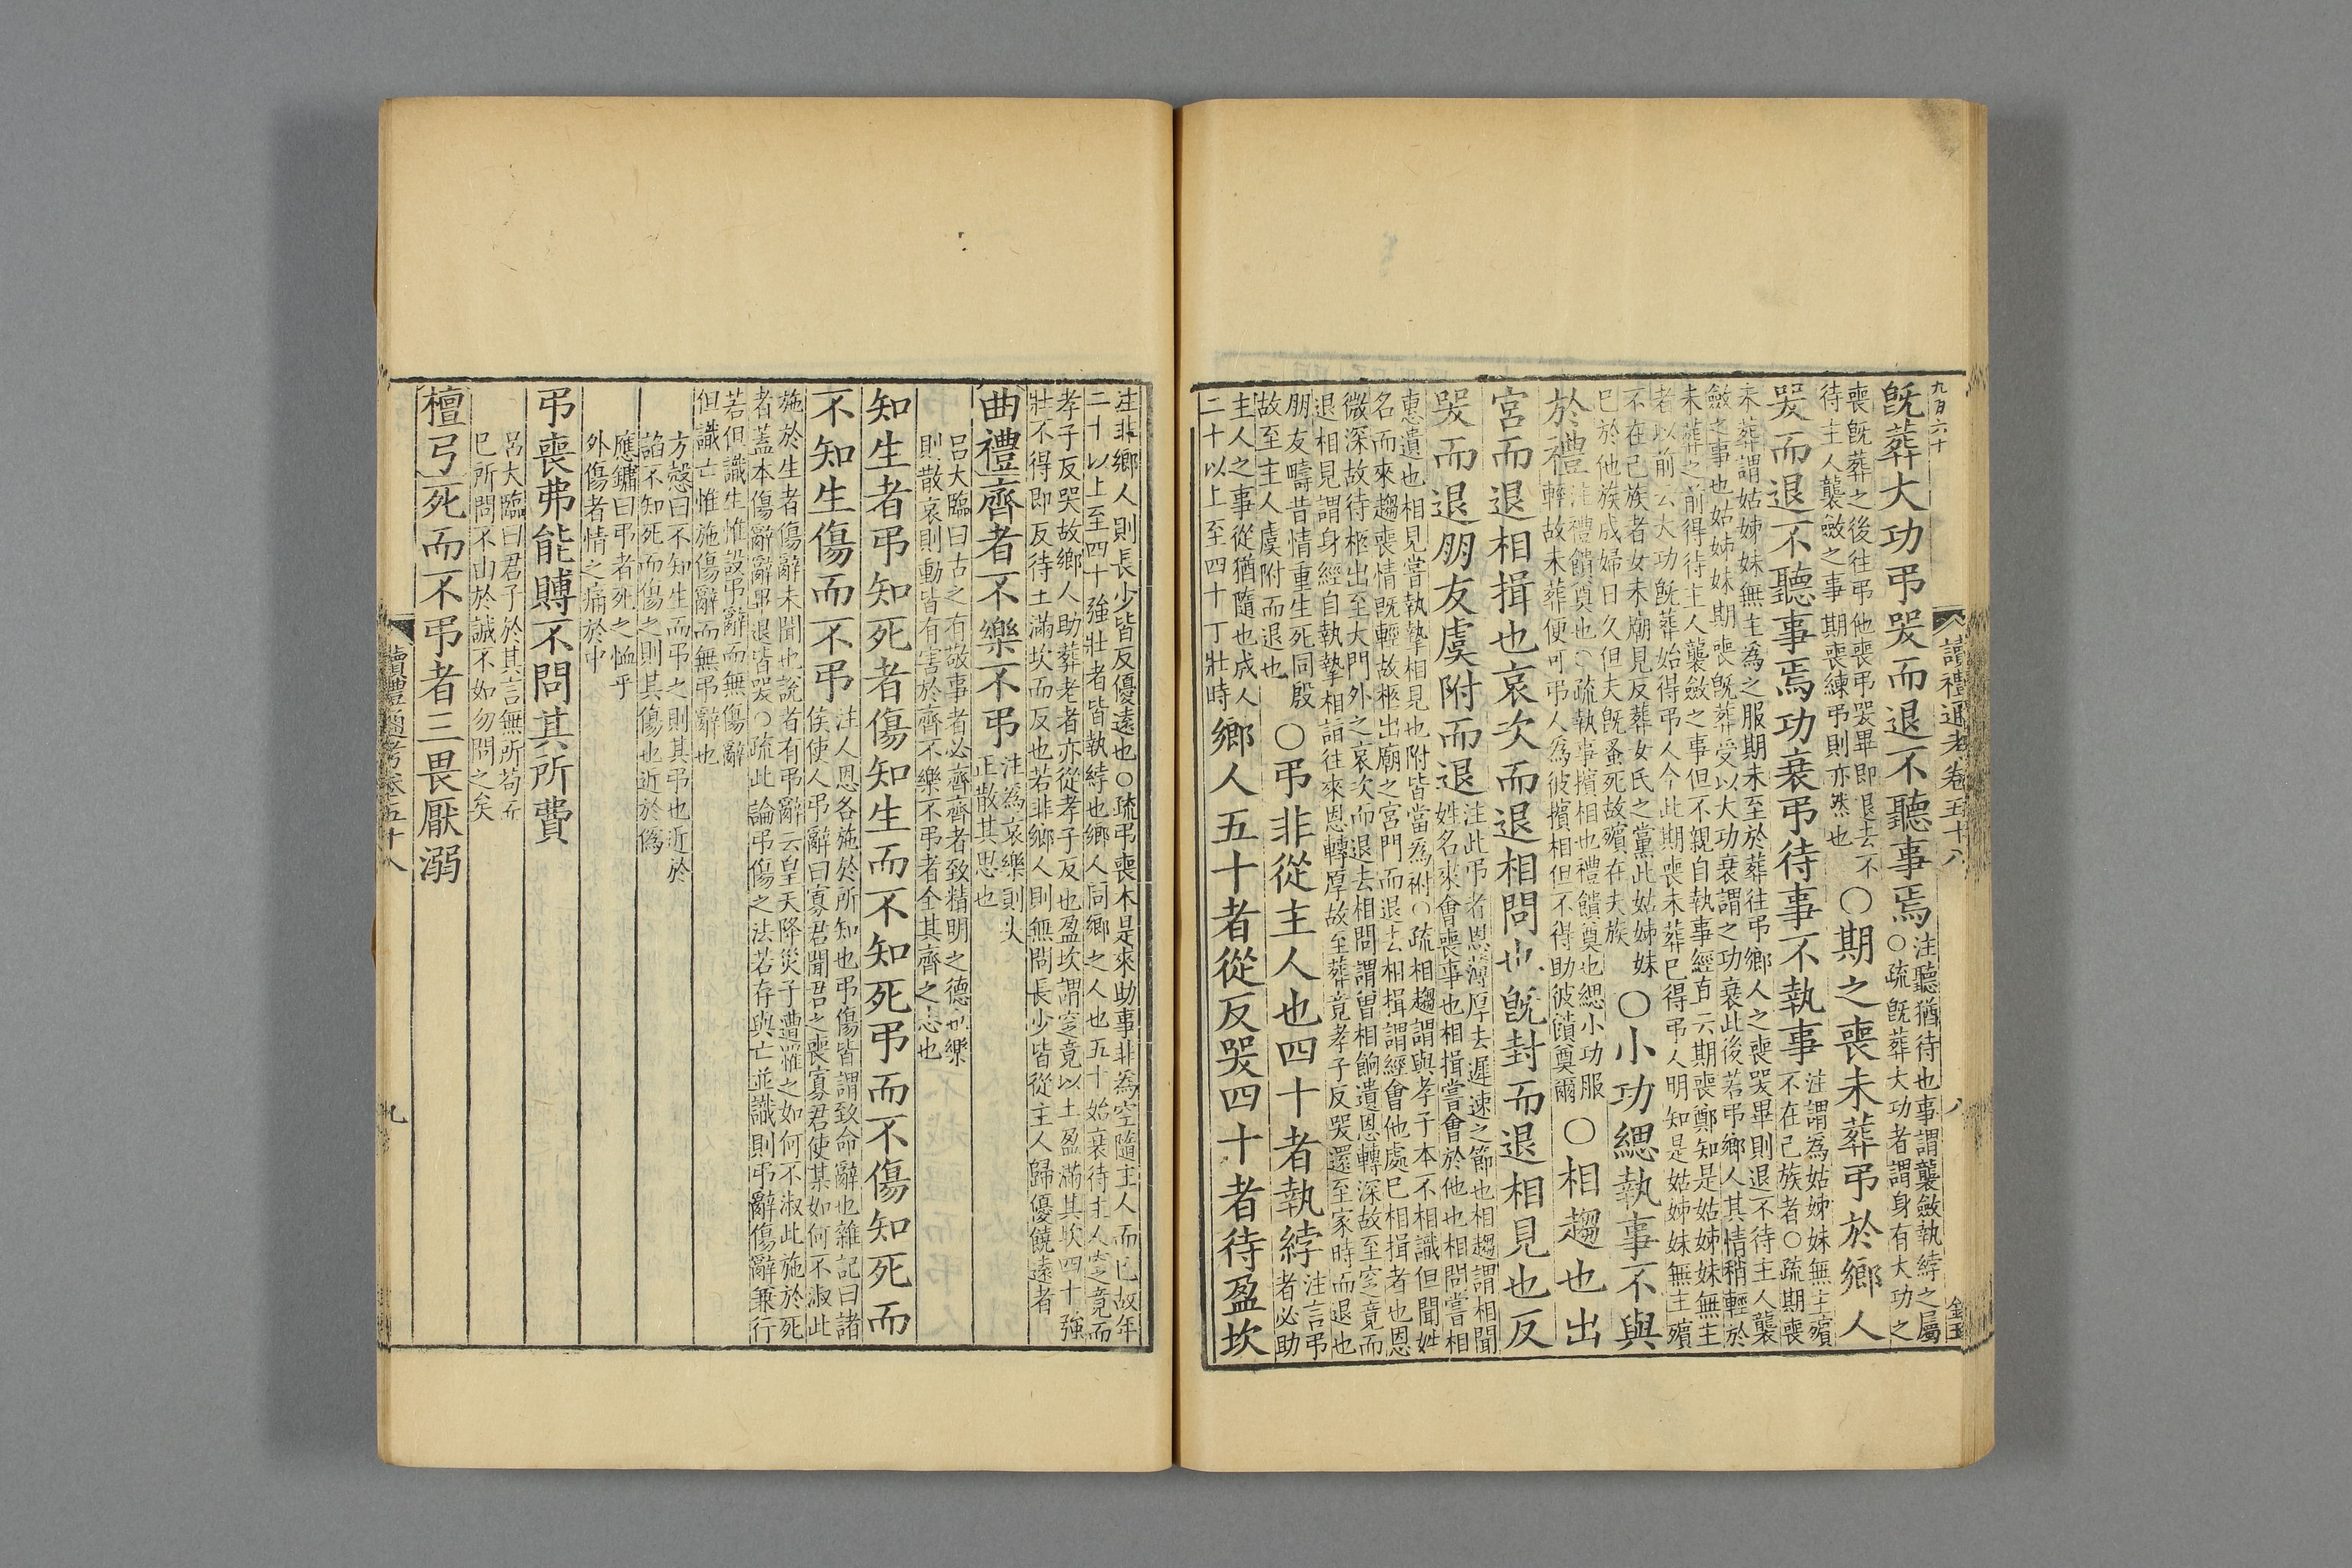 九百六十
讀禮通考卷五十八
八
金玉
既葬大功弔哭而退不聽事焉
注聽猶待也事謂襲斂執紼之屬
○疏既葬大功者謂身有大功之
喪既葬之後往弔他喪弔哭畢即退去不
待主人襲斂之事期喪練弔則亦然也
○期之喪未葬弔於鄉人
哭而退不聽事焉功衰弔待事不執事
注謂為姑姊妹無主殯
不在己族者○疏期喪
未葬謂姑姊妹無主為之服期未至於葬往弔鄉人之喪哭畢則退不待主人襲
斂之事也姑姊妹期喪既葬受以大功衰謂之功衰此後若弔鄉人其情稍輕於
未葬之前得待主人襲斂之事但不親自執事經直云期喪鄭知是姑姊妹無主
者以前云大功既葬始得弔人今此期喪未葬已得弔人明知是姑姊妹無主殯
不在己族者女未廟見反葬女氏之黨此姑姊妹
已於他族成婦日久但夫既蚤死故殯在夫族
○小功緦執事不與
於禮
注禮饋奠也○疏執事擯相也禮饋奠也緦小功服
輕故未葬便可弔人為彼擯相但不得助彼饋奠爾
○相趨也出
宮而退相揖也哀次而退相問也既封而退相見也反
哭而退朋友虞附而退
注此弔者恩薄厚去遲速之節也相趨謂相聞
姓名來會喪事也相揖嘗會於他也相問嘗相
惠遺也相見嘗執摯相見也附皆當為祔○疏相趨謂與孝子本不相識但聞姓
名而來趨喪情既輕故柩出廟之宮門而退去相揖謂經會他處已相揖者也恩
微深故待柩出至大門外之哀次而退去相問謂曾相餉遺恩轉深故至窆竟而
退相見謂身經自執摯相詣往來恩轉厚故至葬竟孝子反哭還至家時而退也
朋友疇昔情重生死同殷
故至主人虞附而退也
○弔非從主人也四十者執紼
注言弔
者必助
主人之事從猶隨也成人
二十以上至四十丁壯時
鄉人五十者從反哭四十者待盈坎
注非鄉人則長少皆反優遠也○疏弔喪本是來助事非為空隨主人而已故年
二十以上至四十強壯者皆執紼也鄉人同鄉之人也五十始衰待主人窆竟而
孝子反哭故鄉人助葬老者亦從孝子反也盈坎謂窆竟以土盈滿其坎四十強
壯不得即反待土滿坎而反也若非鄉人則無問長少皆從主人歸優饒遠者
曲禮齊者不樂不弔
注為哀樂則失
正散其思也
呂大臨曰古之有敬事者必齊齊者致精明之德也樂
則散哀則動皆有害於齊不樂不弔者全其齊之志也
知生者弔知死者傷知生而不知死弔而不傷知死而
不知生傷而不弔
注人恩各施於所知也弔傷皆謂致命辭也雜記曰諸
侯使人弔辭曰寡君聞君之喪寡君使某如何不淑此
施於生者傷辭未聞也說者有弔辭云皇天降災子遭罹之如何不淑此施於死
者蓋本傷辭辭畢退皆哭○疏此論弔傷之法若存與亡並識則弔辭傷辭兼行
若但識生惟設弔辭而無傷辭
但識亡惟施傷辭而無弔辭也
方愨曰不知生而弔之則其弔也近於
諂不知死而傷之則其傷也近於偽
應鏞曰弔者死之恤乎
外傷者情之痛於中
弔喪弗能賻不問其所費
呂大臨曰君子於其言無所苟而
已所問不由於誠不如勿問之矣
檀弓死而不弔者三畏厭溺
讀禮通考卷五十八
九